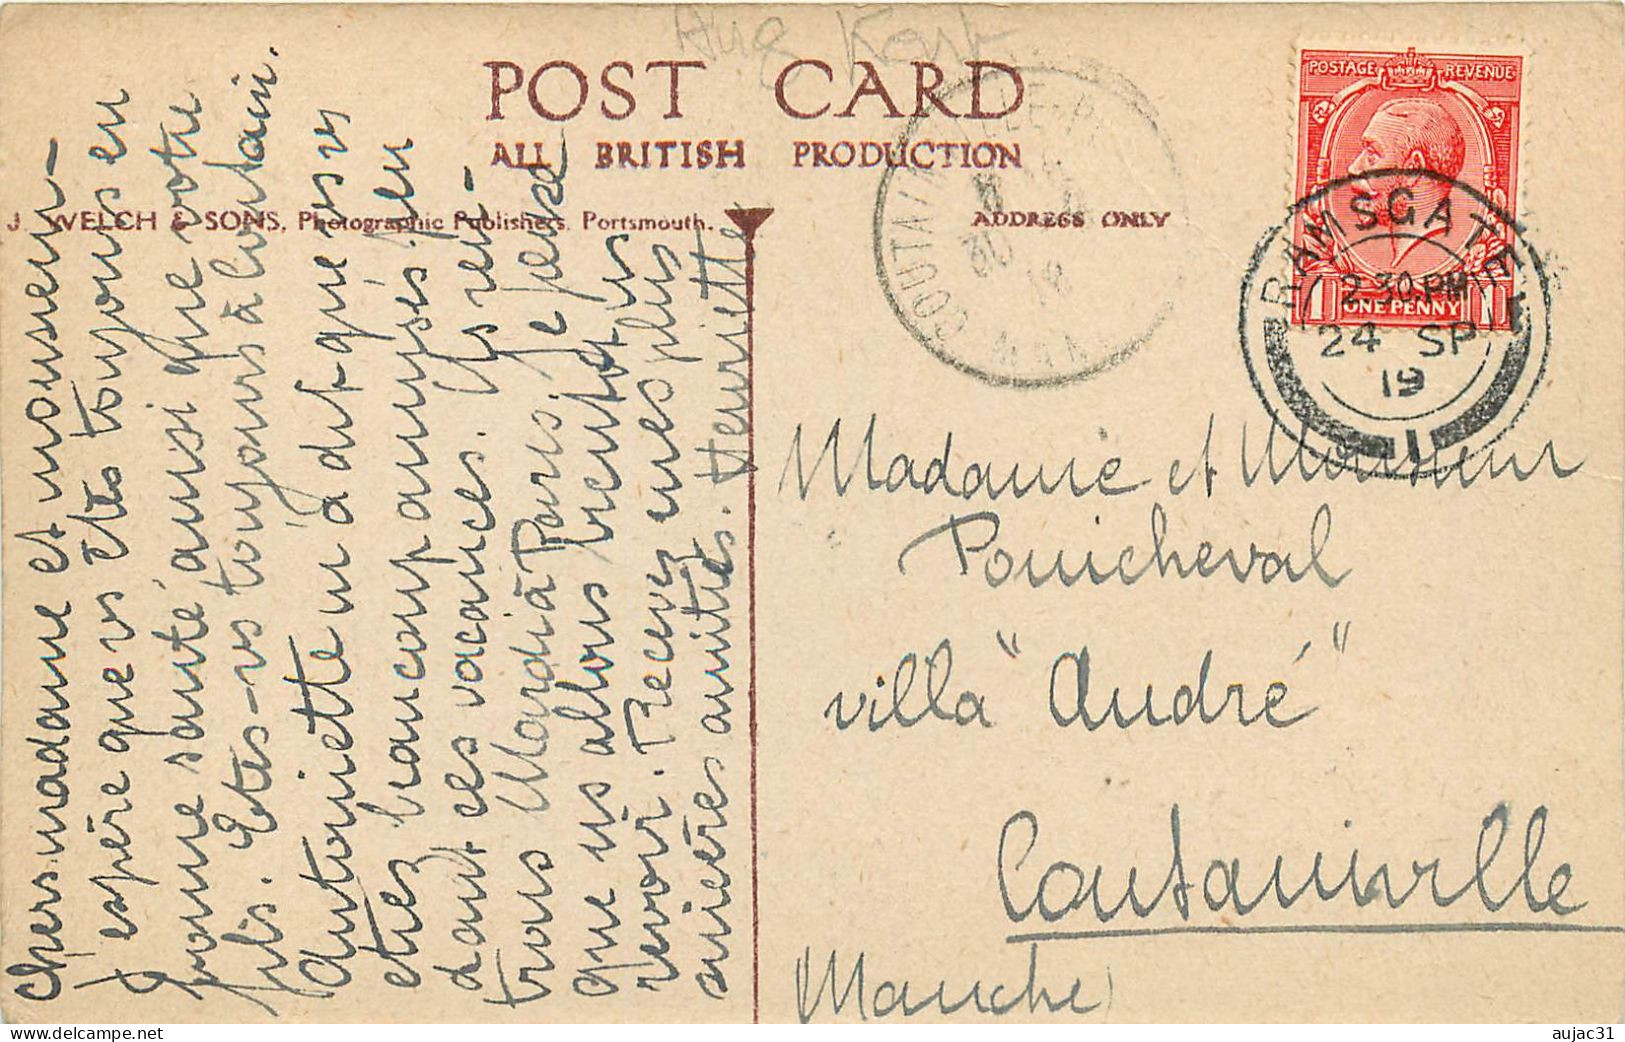 Aug
POST CARD
ALL BRITISH PRODUCTION
J. WELCH & SONS, Photographic Publishers, Portsmouth.
ADDRESS ONLY
POSTAGE REVENUE
1 ONE PENNY 1
RAMSGATE
2.30 PM
24 SP
19
1
COUTAINVILLE
30
19
Chers madame et monsieur
J'espère que vs êtes toujours en
bonne santé, ainsi que votre
fils. Êtes-vs toujours à Coutain.
Antoinette m'a dit que vs vs
êtes beaucoup amusés pen
dant ces vacances. Ns ren-
trons Mardi à Paris. Je pense
que ns allons bientôt ns
revoir. Recevez mes plus
sincères amitiés. Henriette
Madame et Monsieur
Pouicheval
villa "André"
Coutainville
Manche
www.delcampe.net
aujac31